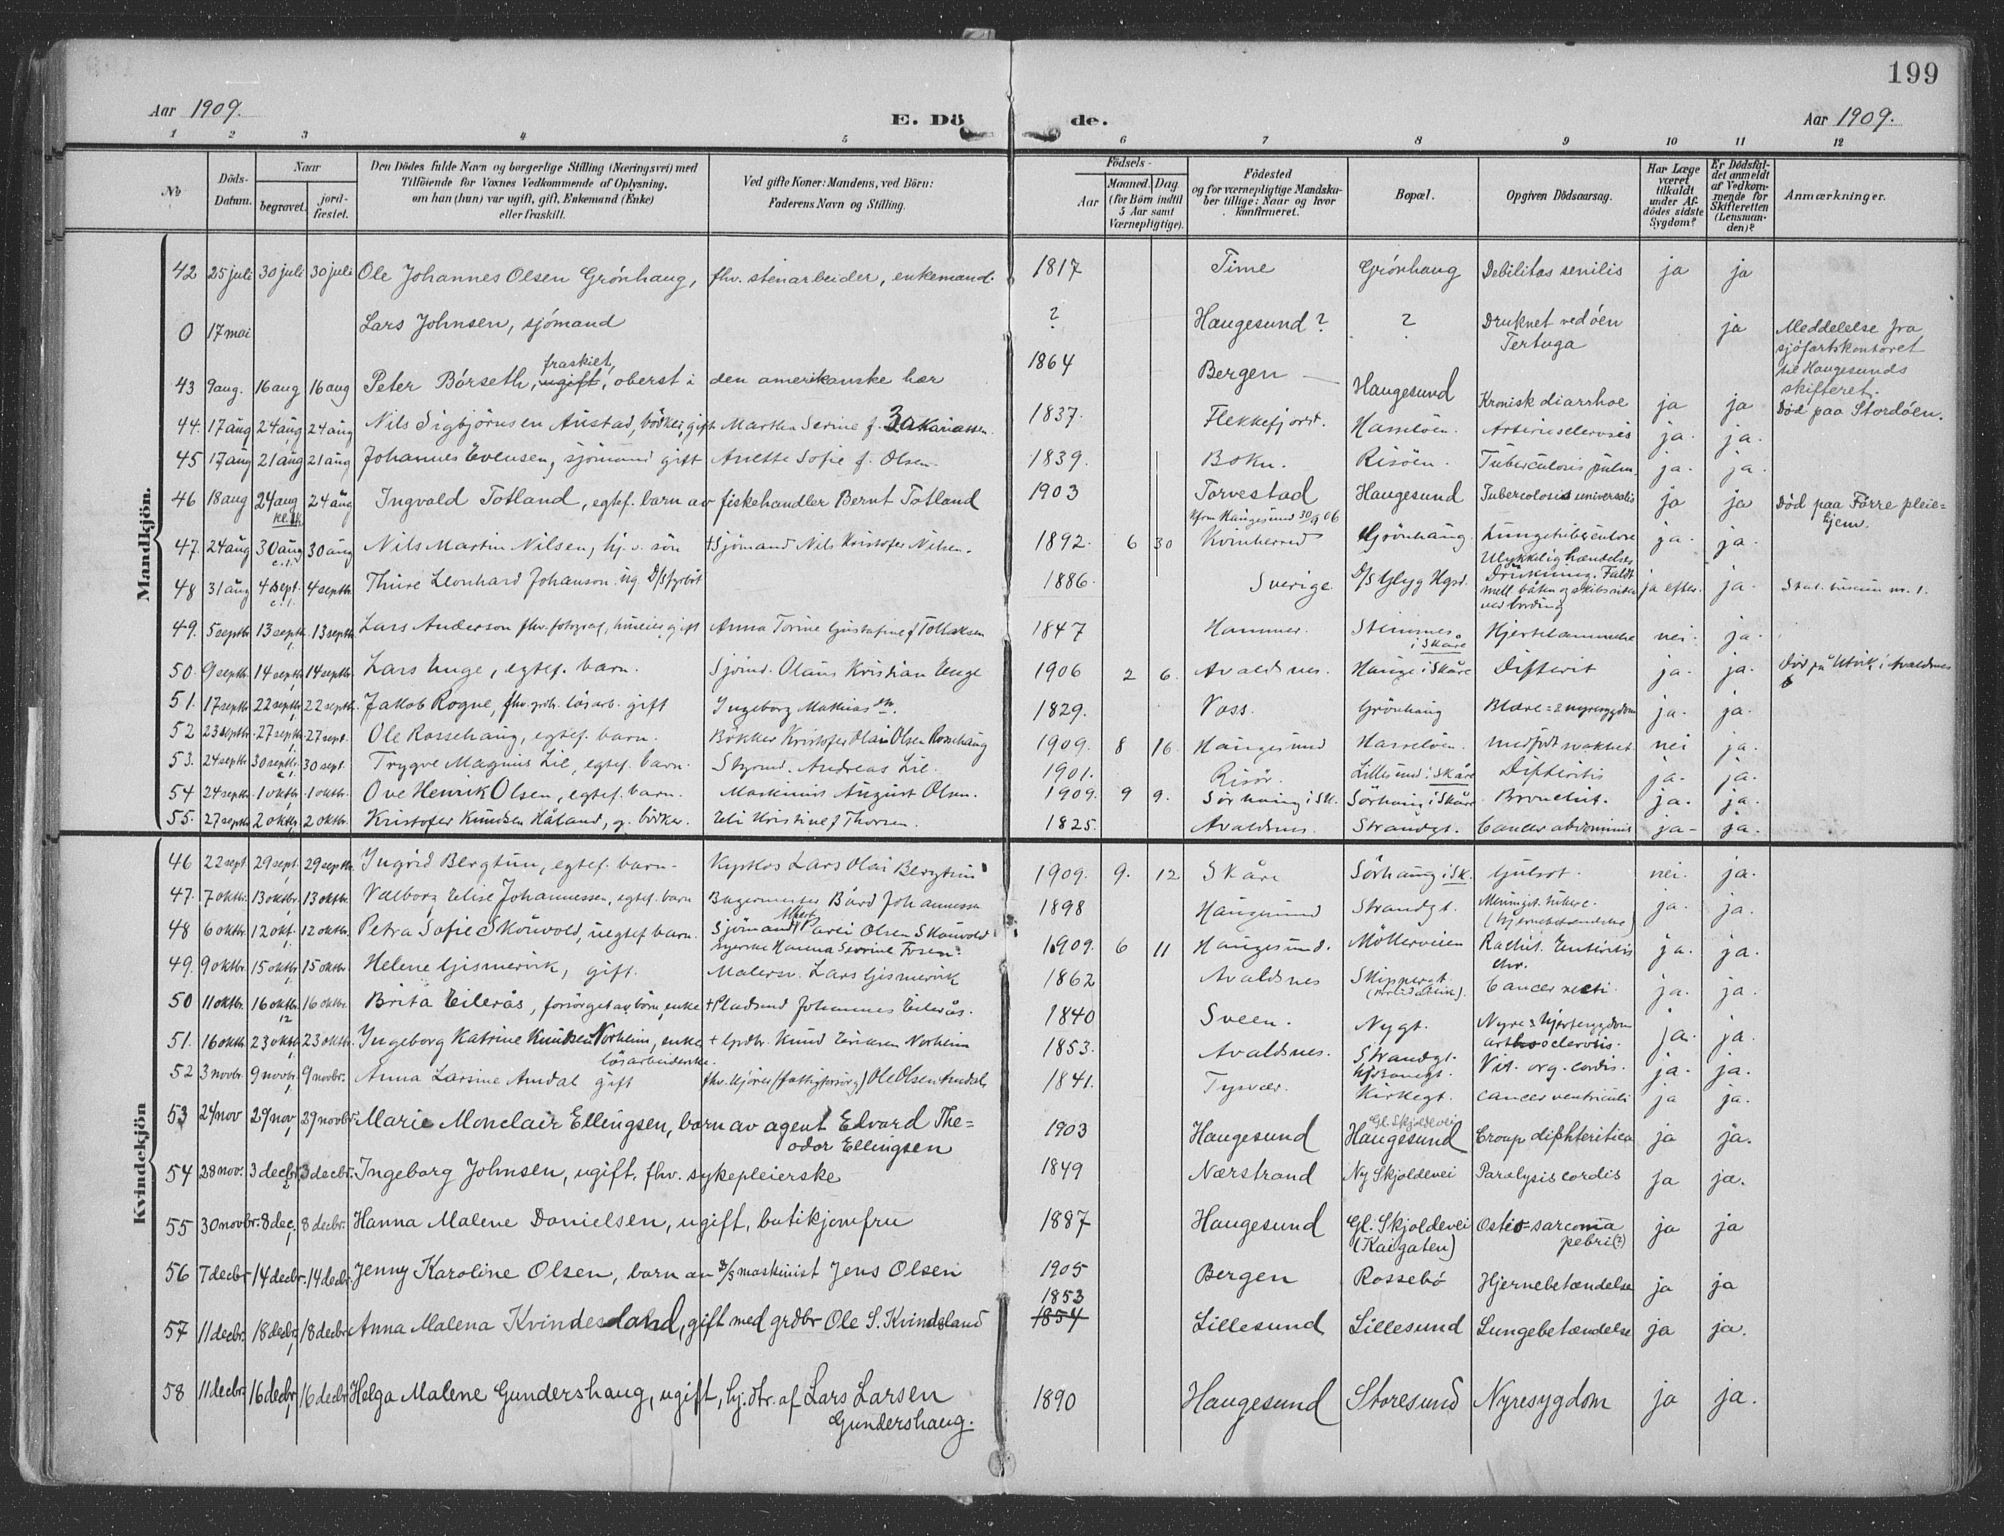 199
Aar 1909.
E. Döde.
Aar 1909.
1 2 3 4 5 6 7 8 9 10 11 12
No
Döds-Datum.
Naar
begravet.
jordfæstet.
Den Dödes fulde Navn og borgerlige Stilling (Næringsvei) med
Tilföiende for Voxnes Vedkommende af Oplysning,
om han (hun) var ugift, gift, Enkemand (Enke)
eller fraskilt.
Ved gifte Koner: Mandens, ved Börn:
Faderens Navn og Stilling.
Födsels-
Aar
Maaned. Dag.
(for Börn indtil
5 Aar samt
Værnepligtige).
Födested
og for værnepligtige Mandskaber tillige: Naar og hvor
konfirmeret.
Bopæl.
Opgiven Dödsaarsag.
Har Læge
været
tilkaldt
under Afdödes sidste
Sygdom?
Er Dödsfaldet anmeldt
af Vedkommende for
Skifteretten
(Lensmanden)?
Anmærkninger.
Mandkjön.
42 25 juli 30 juli 30 juli Ole Johannes Olsen Grönhaug, fhv. stenarbeider, enkemand. 1817 Time Grönhaug Debilitas senilis ja ja
0 17 mai Lars Johnsen, sjömand ? Haugesund? ? Druknet ved öen Tertuga ja Meddelelse fra
sjöfartskontoret
til Haugesunds
skifteret.
43 9 aug. 16 aug 16 aug Peter Börseth, fraskilt, ugift, oberst i den amerikanske hær 1864 Bergen Haugesund Kronisk diarrhoe ja ja Död paa Stordöen.
44. 17 aug 24 aug 24 aug Nils Sigbjörnsen Anstad, bödker, gift Martha Serine f. Zakariassen. 1837. Flekkefjord. Hasselöen. Arteriesclerosis ja. ja.
45 17 aug 21 aug 21 aug Johannes Evensen, sjömand gift Anette Sofie f. Olsen. 1839. Bokn. Risöen. Tuberculosis pulm. ja. ja.
46 18 aug 24 aug 24 aug Ingvald Totland, egtef. barn av fiskehandler Bernt Totland 1903 Torvestad Haugesund Tubercolosis universalis ja ja Död paa Förre pleiehjem.
47. 24 aug 30 aug 30 aug Nils Martin Nilsen, hj. v. sön + Sjömand Nils Kristofer Nilsen. 1892. 6 30 Kfrm Haugesund 30/9 06 Kvinherred Grönhaug. Lungetuberculose ja. ja.
48 31 aug 4 sept. 4 septbr Thure Leonhard Johanson. ug. D/S fyrböt 1886. Sverige. D/S Glyg Hgsd. Ulykkelig hændelse
Drukning. Faldt
mell båten og skibssiden
ved bording ja efter. ja.
49. 5 septb 13 septb. 13 septb. Lars Anderson fhv. fotograf, gift Anna Torine Gustafine f Tollaksen 1847 Hammer. Stemnes
i Skåre Hjertelammelse nei. ja.
50. 9 septb. 14 septb. 14 septb. Lars Enge, egtef. barn. Sjömd. Olaus Kristian Enge 1906 2 6. Avaldsnes. Hauge i Skåre Difterit ja. ja. Död på Utvik i Avaldsnes
51. 17 septb 22 septb. 22 septb. Jakob Rogne, fhv. løsarb. gift Ingeborg Mathiasdtr. 1829. Voss. Grönhaug Blære= & nyresygdom ja. ja.
52 23 septb. 27 septb. 27 sept. Ole Rossehaug, egtef. barn. Bökker Kristofer Olai Olsen Rossehaug 1909. 8 16. Haugesund Hasselöen. Medfödt svakhet nei ja.
53. 24 septb. 30 septb. 30 sept. Trygve Magnus Lie, egtef. barn. Styrmd. Andreas Lie. 1901. Risör. Lillesund i Skåre Difteritis ja. ja.
54 24 septb. 1 oktbr. 1 oktbr. Ove Henrik Olsen, egtef. barn. Maskinist August Olsen. 1909. 9 9. Sörhaug i Sk. Sörhaug i Skåre Bronchit. ja. ja.
55. 27 septb 2 oktbr. 2 oktbr. Kristofer Knudsen Håland, g. bödker. Eli Kristine f Thorsen. 1825. Avaldsnes. Strandgt. Cancer abdominis ja. ja.
Kvindekjön
46 22 sept 29 sept. 29 septb. Ingrid Bergtun, egtef. barn. Lars Olai Bergtun 1909. 9. 12 Skåre Sörhaug i Sk. Gulsot. nei. ja.
47. 7 oktbr. 13 oktbr. 13 oktbr. Valborg Elise Johannessen, egtef. barn Bagermester Bård Johannessen 1898 Haugesund Strandgt. Meningit. tuberc.
(hjernebetændelse) ja. ja.
48 6 oktbr. 12 okt. 12 oktbr. Petra Sofie Skönvold, uegtef. barn. Sjömand Albert Parli Olsen Skönvold
Hanna Serine 1909. 6 11 Haugesund. Möllerveien Rachit. Enteritis
chr. ja. ja.
49. 9 oktbr. 15 oktbr. 15 oktbr. Helene Gismervik, gift. Malersv. Lars Gismervik 1862 Avaldsnes Skippergt. Cancer recti ja. ja.
50 11 oktbr. 16 oktbr. 16 oktbr. Brita Eilerås, forsörget av börn, enke + Pladsmd Johannes Eilerås. 1840 Sveen. Nygt. Nyre & hjertesygdom ja. ja.
51. 16 oktbr. 23 oktbr. 23 oktbr. Ingeborg Katrine Knudsen Norheim, enke
lösarbeiderske. + Grdbr. Knud Eriksen Norheim 1853. Avaldsnes. Strandgt. sclerosis. ja. ja.
52 3 novbr. 9 novbr. 9 novbr. Anna Larsine Amdal gift fhv. (fattigforsörg) Ole Olsen Amdal 1841. Tysvær. Kirkegt. Vit. org. cordis.
cancer ventriculi ja ja.
53 24/nov 29/nov, 29 novbr. Marie Monclair Ellingsen, barn av agent Edvard Theodor Ellingsen 1903 Haugesund Gl. Skjoldevei
Haugesund Croup diphteritica ja ja.
54 28 nov. 3 decbr. 3 decbr. Ingeborg Johnsen, ugift, fhv. sykepleierske 1849 Nærstrand Ny Skjoldevei Paralysis cordis ja ja.
55 30 novbr. 8 dec. 8 decbr. Hanna Malene Danielsen, ugift, butikjomfru 1887 Haugesund Gl. Skjoldevei
(Kaigaten) Osteo=sarcoma
pebri(?) ja ja
56 7 decbr. 14 decbr. 14 decbr. Jenny Karoline Olsen, barn av D/S maskinist Jens Olsen 1905 Bergen Rossebö Hjernebetændelse ja ja
57 11 decbr. 18 decbr. 18 decbr. Anna Malena Kvindesland, gift med grdbr Ole S. Kvindesland 1853
1854 Lillesund Lillesund Lungebetændelse ja ja.
58 11 decbr. 16 decbr. 16 decbr. Helga Malene Gundershaug, ugift, hj. dtr. af Lars Larsen
Gundershaug. 1890 Haugesund Storesund Nyresygdom ja ja.